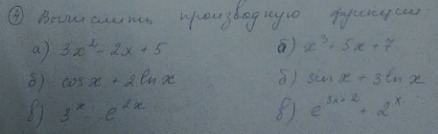 ④ Вычислить производную функции
а) 3x² - 2x + 5 а) x³ + 5x + 7
б) cos x + 2 ln x б) sin x + 3 ln x
в) 3ˣ - e²ˣ в) e³ˣ⁺² + 2ˣ